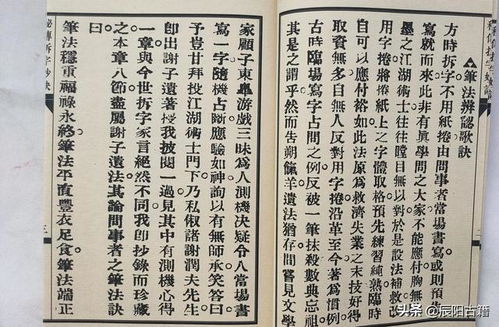 筆法辨認歌訣
方時拆字不用紙捲由問事者當場書寫或則預先
寫就而來此非有眞學問之大家不能應付胸無點
墨之江湖術士往往瞠目無以對於是設法補救改
用字捲將捲紙上之字體取格預先練習純熟臨時
自可以應付裕如此法原爲救濟失業之末技好得
取資無多自無人反對用字捲沿革至今著爲慣例
古時臨場寫字占問之例反被一筆抹殺數典忘祖
其是之謂乎然而告朔餼羊遺法猶存間嘗見文學
二
家顧子東皋游戲三昧爲人測機決疑令人當場書
寫一字隨機占斷應驗如神詢以有無師承笑答曰
予豈甘拜投江湖術士門下乃私俶諸謝潤夫先生
卽出謝子遺著授我披閱一過見其中有測機心得
一章與今世拆字家言絕然不同我卽抄錄而珍藏
之本章八節盡屬謝子遺法其論問事者之筆法訣
筆法穩重福祿永終筆法平直豐衣足食筆法端正
秘傳拆字妙訣
三
头条 @辰阳古籍